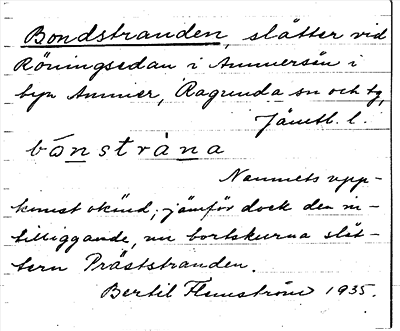 Bondstranden, slåtter vid
Röningsedan i Ammersån i
byn Ammer, Ragunda sn och tg,
Jämtl. l.
bónstràna
Namnets upp-
komst okänd; jämför dock den in-
tilliggande, nu bortskurna slåt-
tern Präststranden.
Bertil Flemström 1935.